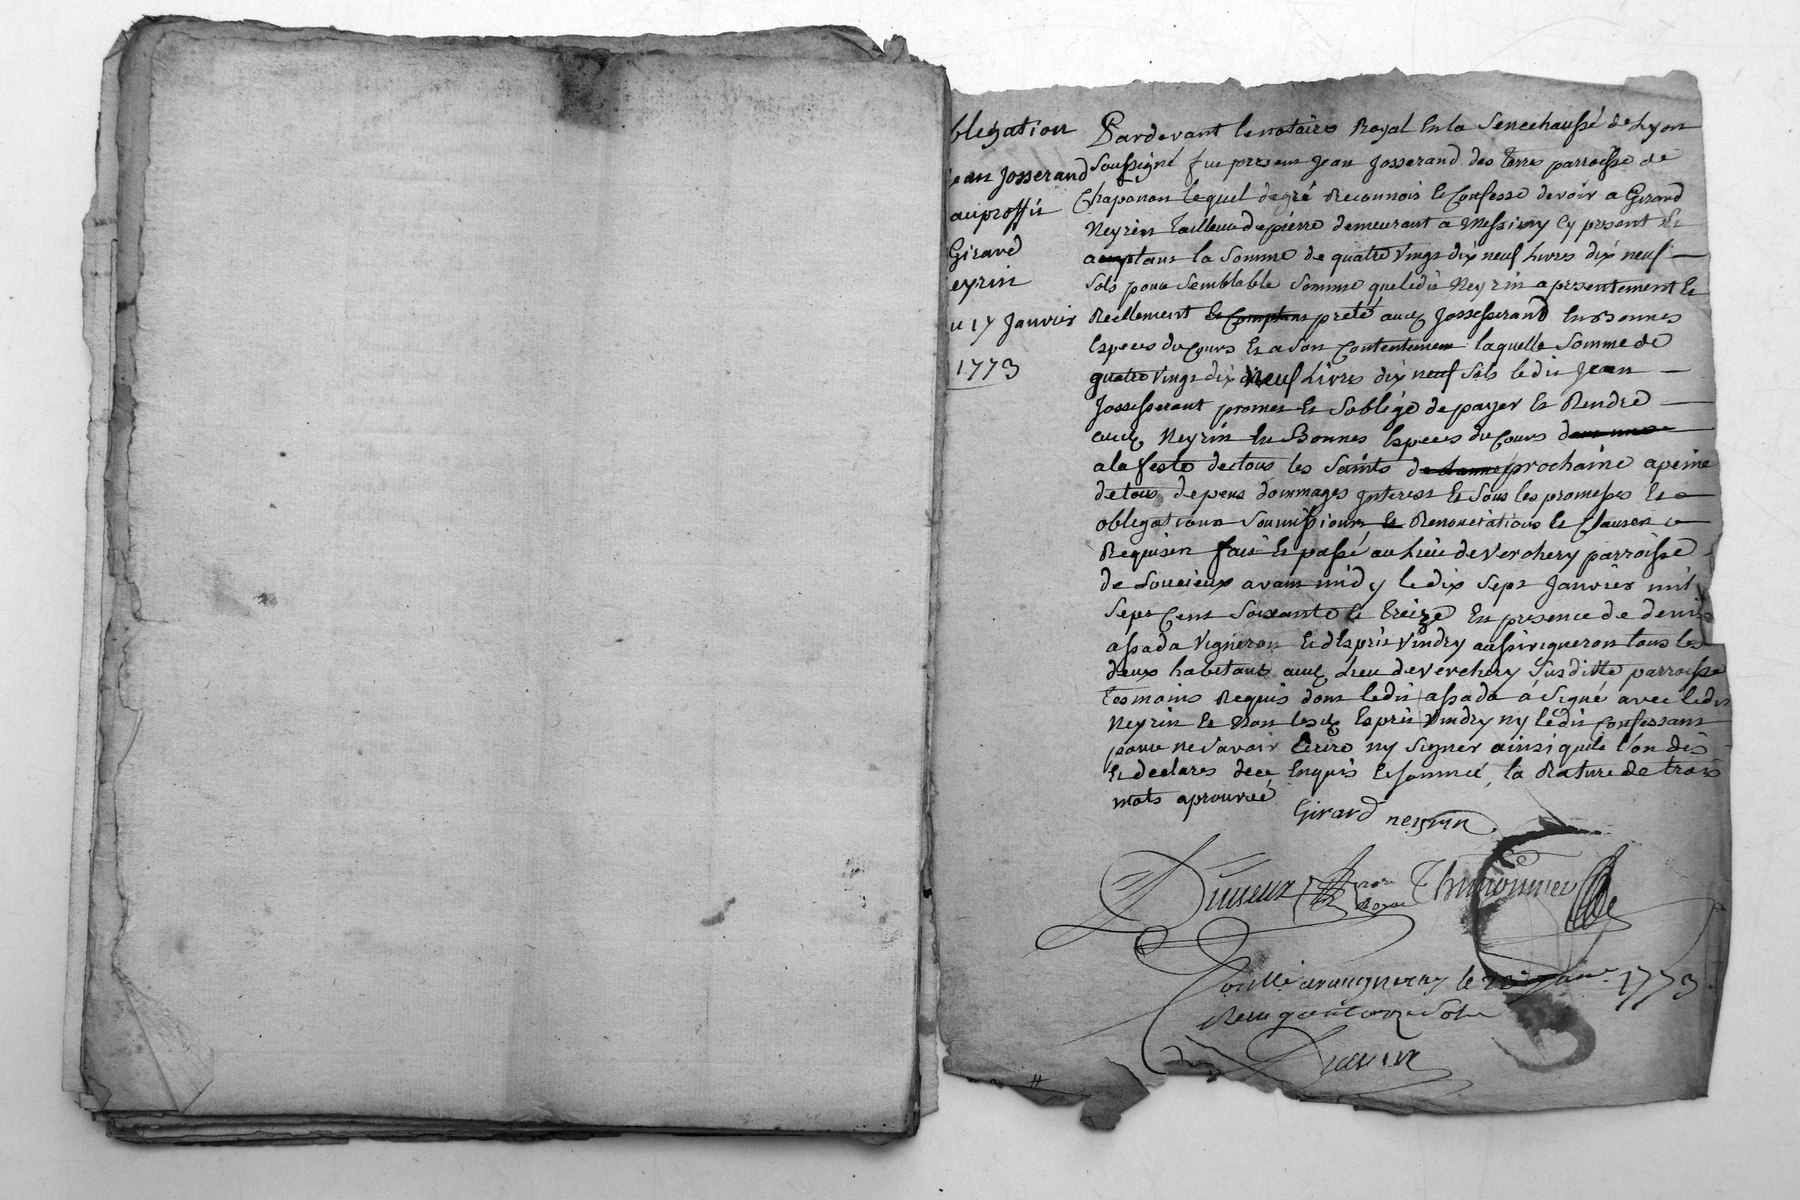 bligation
ean Josserand
auproffit
Girard
eyrin
u 17 Janvier
1773
Pardevant le notaire Royal En la Senechaussé de Lyon
Soussigné fut present Jean Josserand des terres parroisse de
Chaponon lequel de gré Reconnois Et Confesse devoir a Girard
Neyrin tailleur de pierre demeurant a Messimy Cy present Et
acceptant la Somme de quatre Vingt dix neuf Livres dix neuf
Sols pour Semblable Somme que ledit Neyrin a presentement Et
Reellement Et Comptant preté aud Josserand En Bonnes
Especes du Cours Et a Son Contentement laquelle Somme de
quatre Vingt dix neuf Livres dix neuf Sols ledit Jean
Josserant promet Et Soblige de payer Et Rendre
aud Neyrin En Bonnes Especes du Cours
a la feste de tous les Saints prochaine a peine
de tous depens dommages Interest Et Sous les promesses Et
obligations Soumissions Et Renonciations Et Clauses
Requises fait Et passé au Lieu de Verchery parroisse
de Soucieux avant midy le dix Sept Janvier mil
Sept Cent Soixante Et treize En presence de denis
assada Vigneron Et dEsprit Vindry aussi vigneron tous les
deux habitants aud Lieu de Verchery Susditte parroisse
tesmoins Requis dont ledit assada á Signé avec ledit
Neyrin Et Non led Esprit Vindry ny ledit Confessant
pour ne Savoir Ecrire ny Signer ainsi quils l'on dis
Et declares de ce Enquis Et Sommé, la Rature de trois
mots aprouvée
Girard neyrin
Not. Royal
le 1773
Recu quatorze Sols